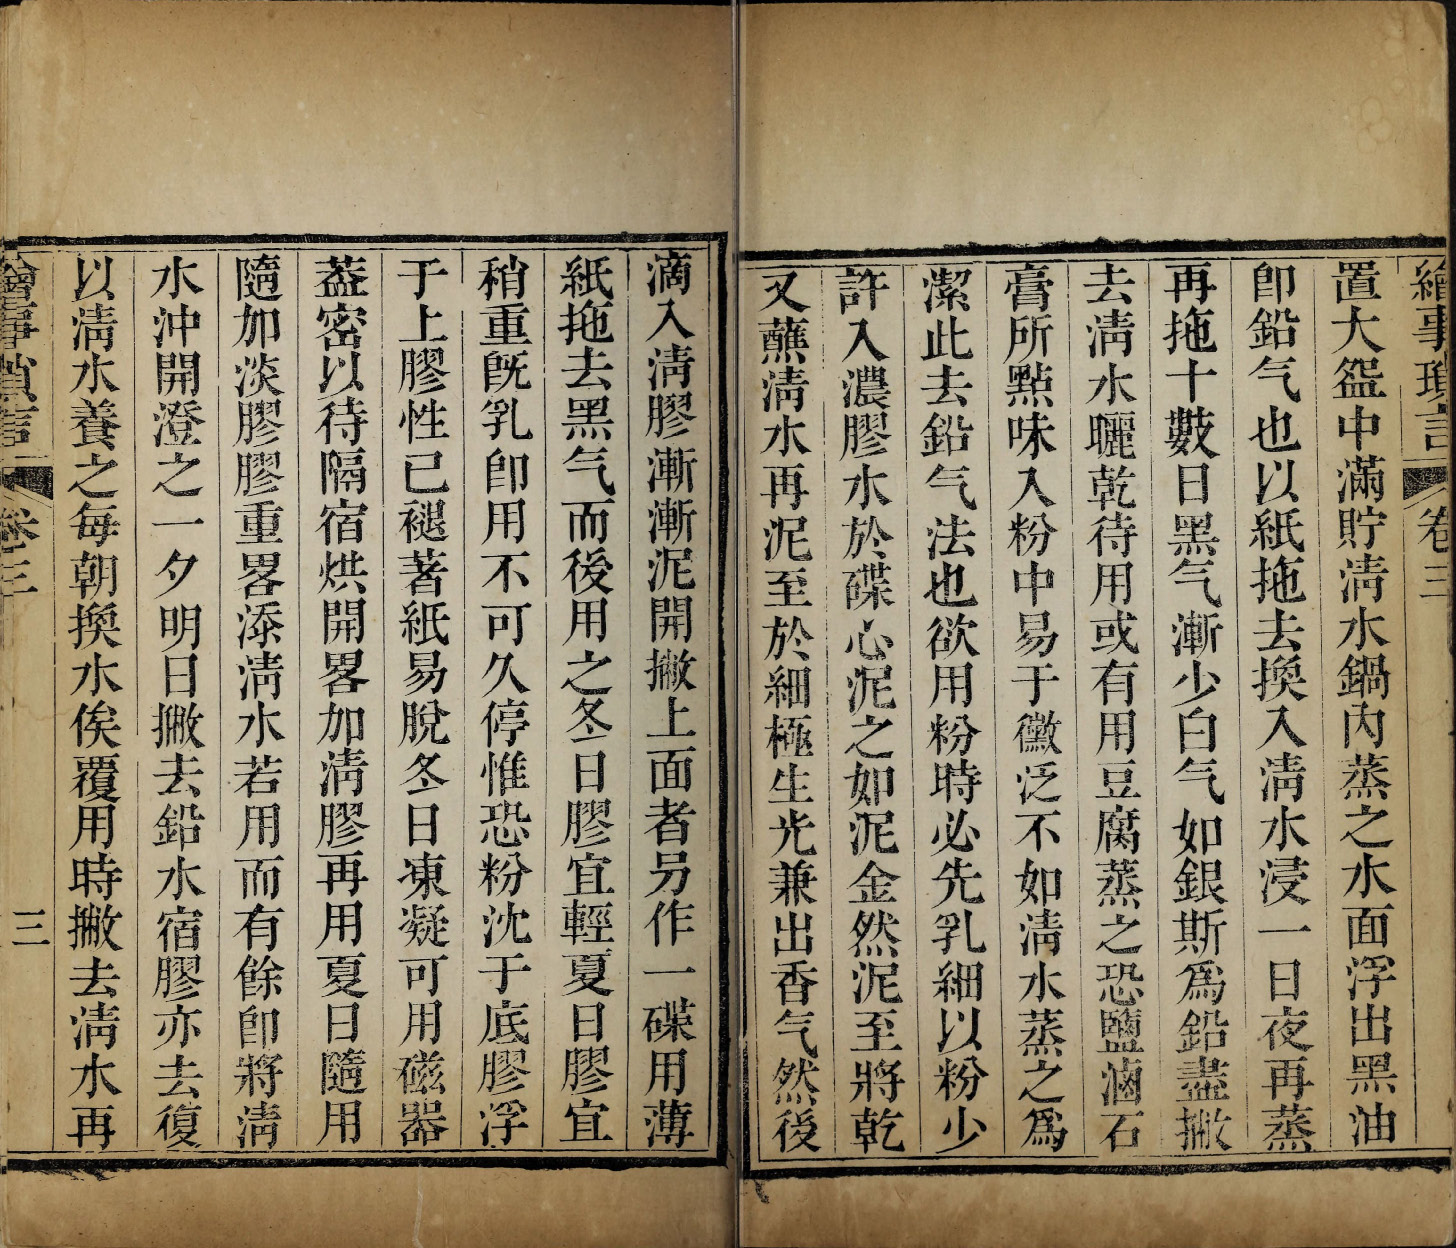 繪事瑣言 卷三
置大盌中滿貯淸水鍋內蒸之水面浮出黑油
卽鉛气也以紙拖去換入淸水浸一日夜再蒸
再拖十數日黑气漸少白气如銀斯爲鉛盡撇
去淸水曬乾待用或有用豆腐蒸之恐鹽滷石
膏所㸃味入粉中易于黴泛不如淸水蒸之爲
潔此去鉛气法也欲用粉時必先乳細以粉少
許入濃膠水於碟心泥之如泥金然泥至將乾
又蘸淸水再泥至於細極生光兼出香气然後
滴入淸膠漸漸泥開撇上面者另作一碟用薄
紙拖去黑气而後用之冬日膠宜輕夏日膠宜
稍重旣乳卽用不可久停惟恐粉沈于底膠浮
于上膠性已褪著紙易脫冬日凍凝可用磁器
葢密以待隔宿烘開畧加淸膠再用夏日隨用
隨加淡膠膠重畧添淸水若用而有餘卽將淸
水沖開澄之一夕明日撇去鉛水宿膠亦去復
以淸水養之每朝換水俟覆用時撇去淸水再
繪事瑣言 卷三 三